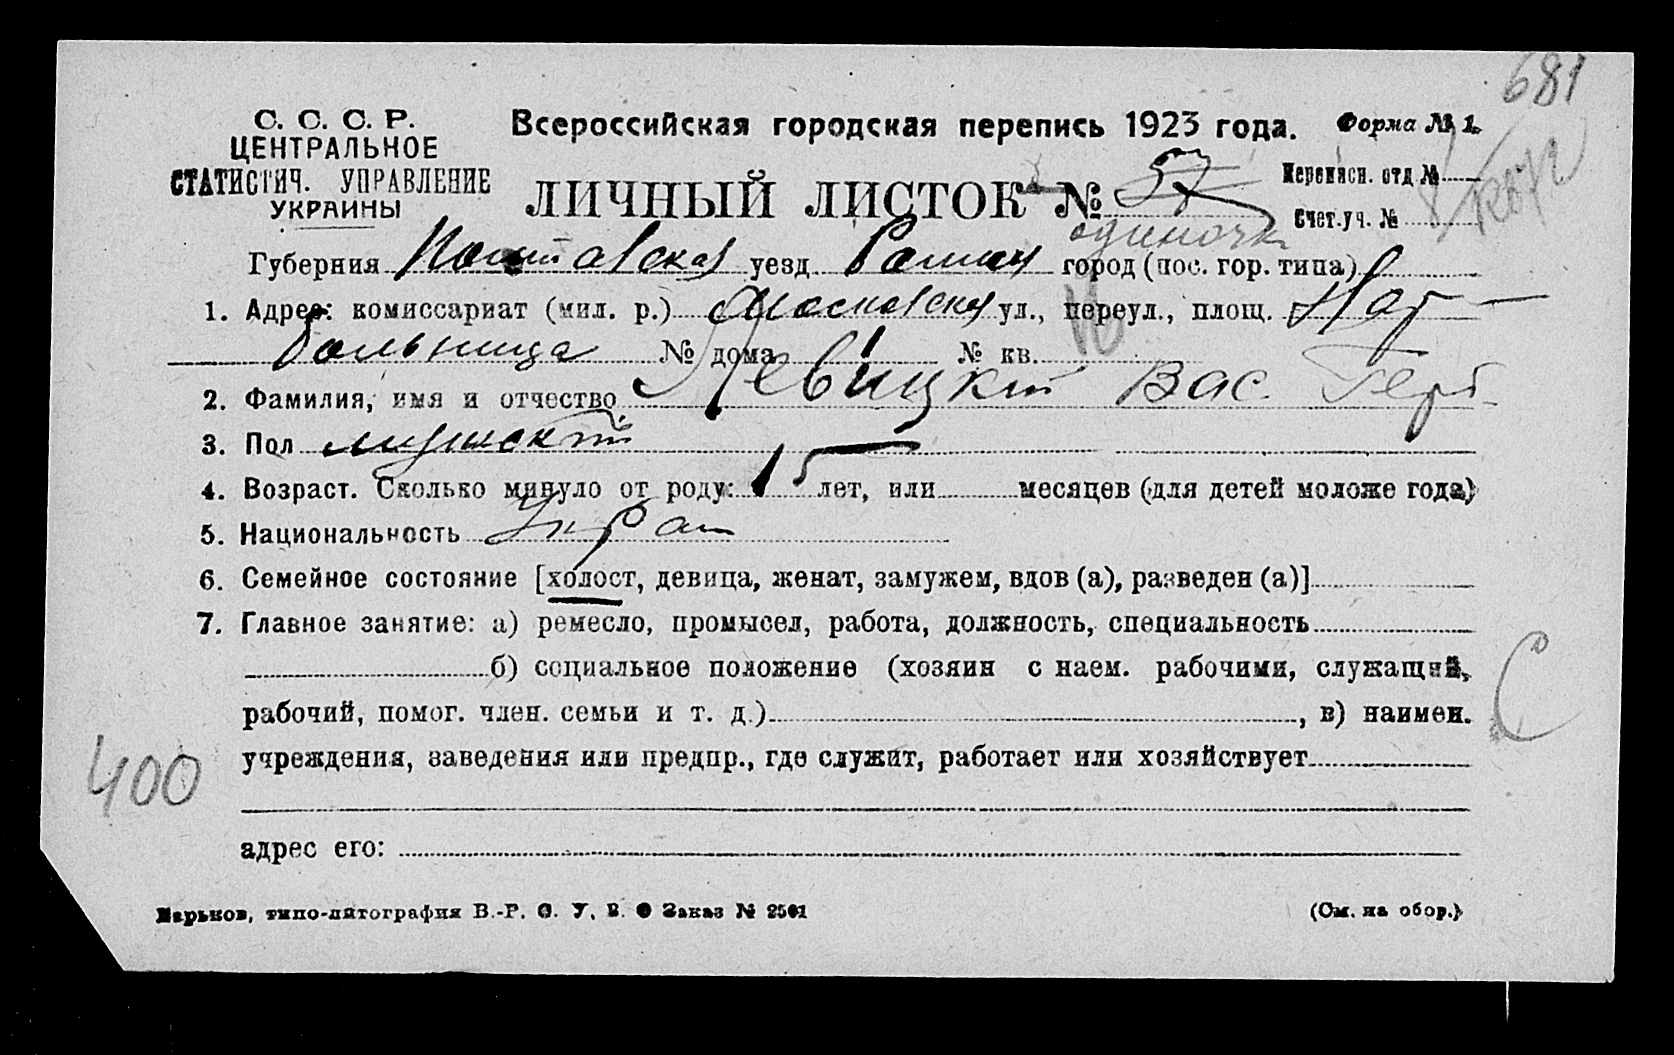 681
С. С. С. Р.
ЦЕНТРАЛЬНОЕ
СТАТИСТИЧ. УПРАВЛЕНИЕ
УКРАИНЫ
Всероссийская городская перепись 1923 года.
Форма № 1.
ЛИЧНЫЙ ЛИСТОК №
Переписн. отд №
Счет.уч. №
одиночк
Губерния Полтавская уезд Ромны город (пос. гор. типа)
1. Адрес: комиссариат (мил. р.) Московская ул., переул., площ. Нар
больница № дома 1 № кв.
2. Фамилия, имя и отчество Левицкий Вас.
3. Пол мужской
4. Возраст. Сколько минуло от роду: 15 лет, или месяцев (для детей моложе года)
5. Национальность Укра
6. Семейное состояние [холост, девица, женат, замужем, вдов (а), разведен (а)]
7. Главное занятие: а) ремесло, промысел, работа, должность, специальность
б) социальное положение (хозяин с наем. рабочими, служащий,
рабочий, помог. член. семьи и т. д.) , в) наимен.
учреждения, заведения или предпр., где служит, работает или хозяйствует
С
400
адрес его:
Харьков, типо-литография В.-Р. С. У. В. О Заказ № 2501
(См. на обор.)